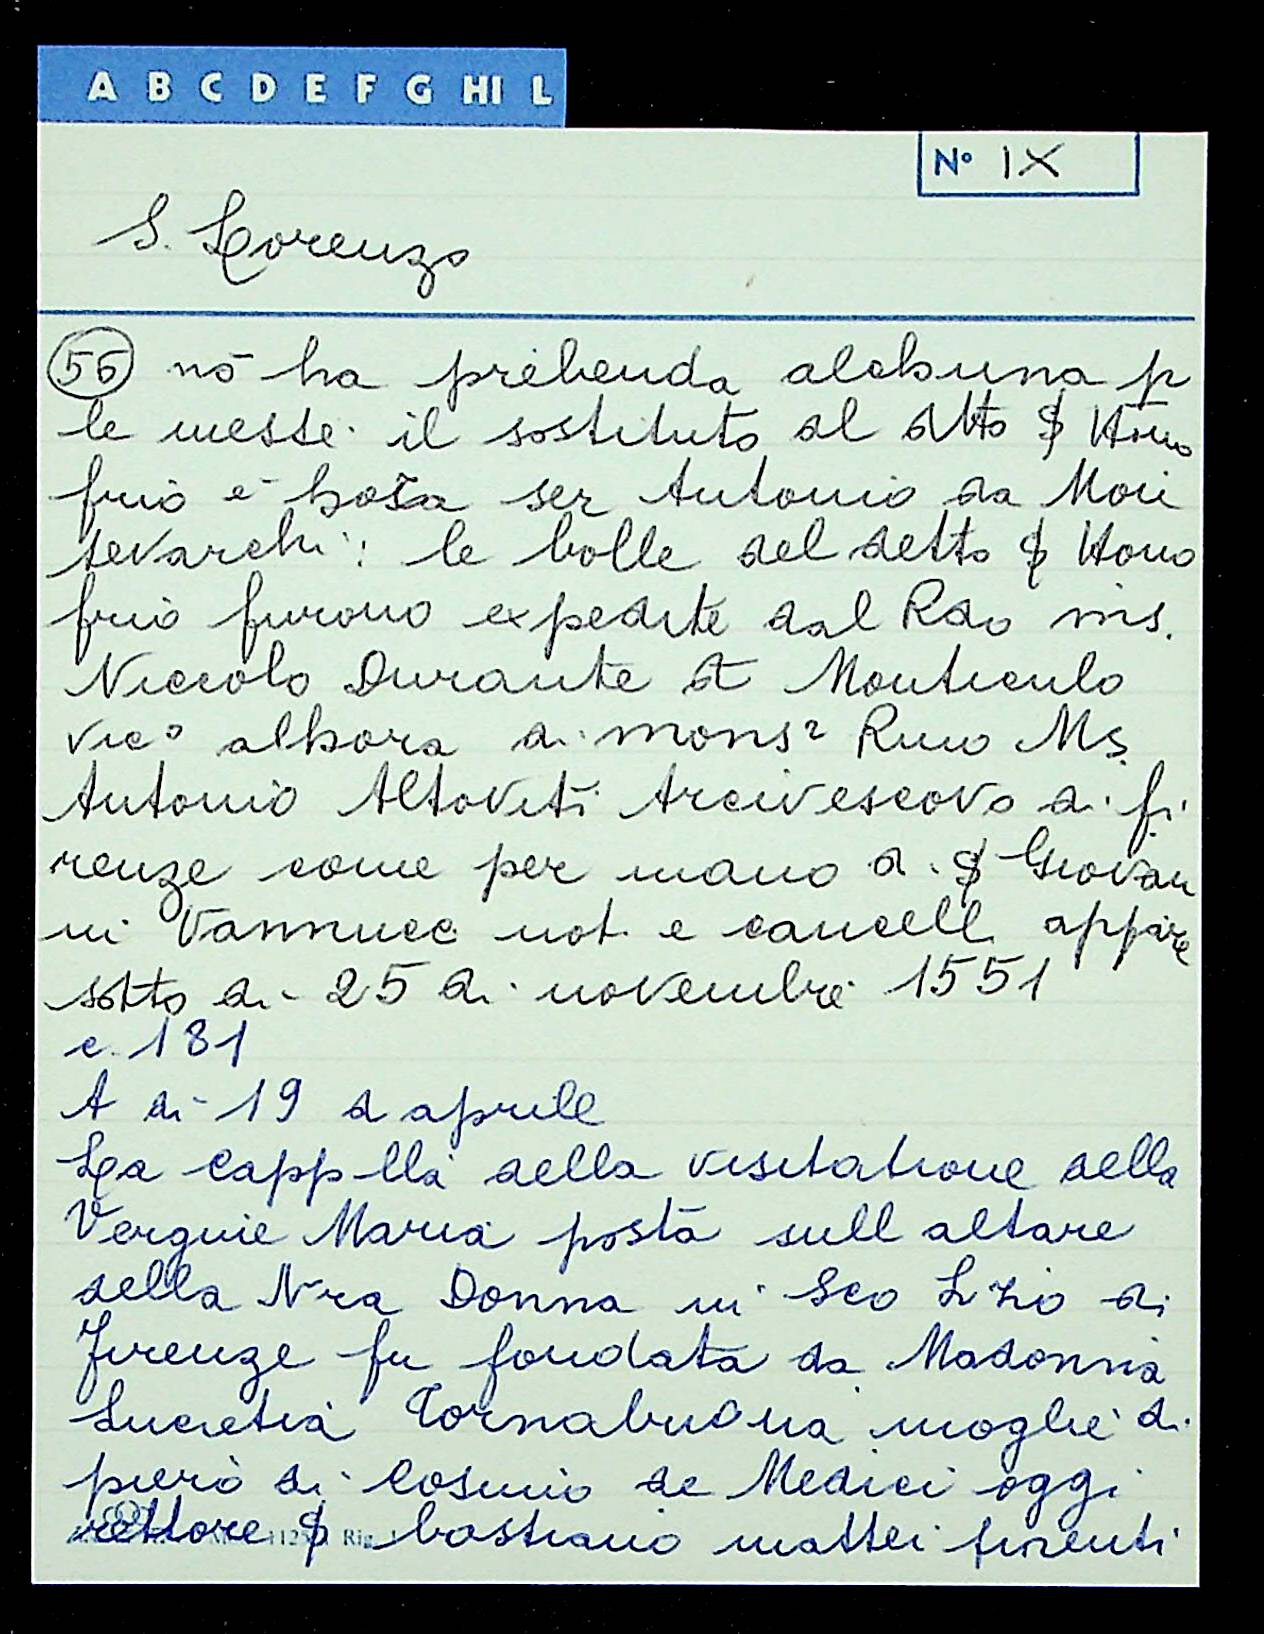 A B C D E F G HI L
N° IX
S. Lorenzo
56 nō ha prebenda alchuna p
le messe. il sostituto al dtto ꝭ Hono
frio e hora ser Antonio da Mon
tevarchi: le bolle del detto ꝭ Hono
frio furono expedite dal Rdo ms.
Niccolo Durante Monticulo
vic° alhora di monsr Rmo Ms
Antonio Altoviti Arcivescovo di fi
renze come per mano di ꝭ Giovan
ni Vannucc not. e cancell. appare
sotto di 25 di novembre 1551
c. 181
A di 19 d aprile
La cappella della visitatione della
Vergine Maria posta sull altare
della Nra Donna in Sco Lzio di
Firenze fu fondata da Madonna
Lucretia Tornabuona moglie di
piero di Cosimo de Medici oggi
rettore ꝭ bastiano mattei